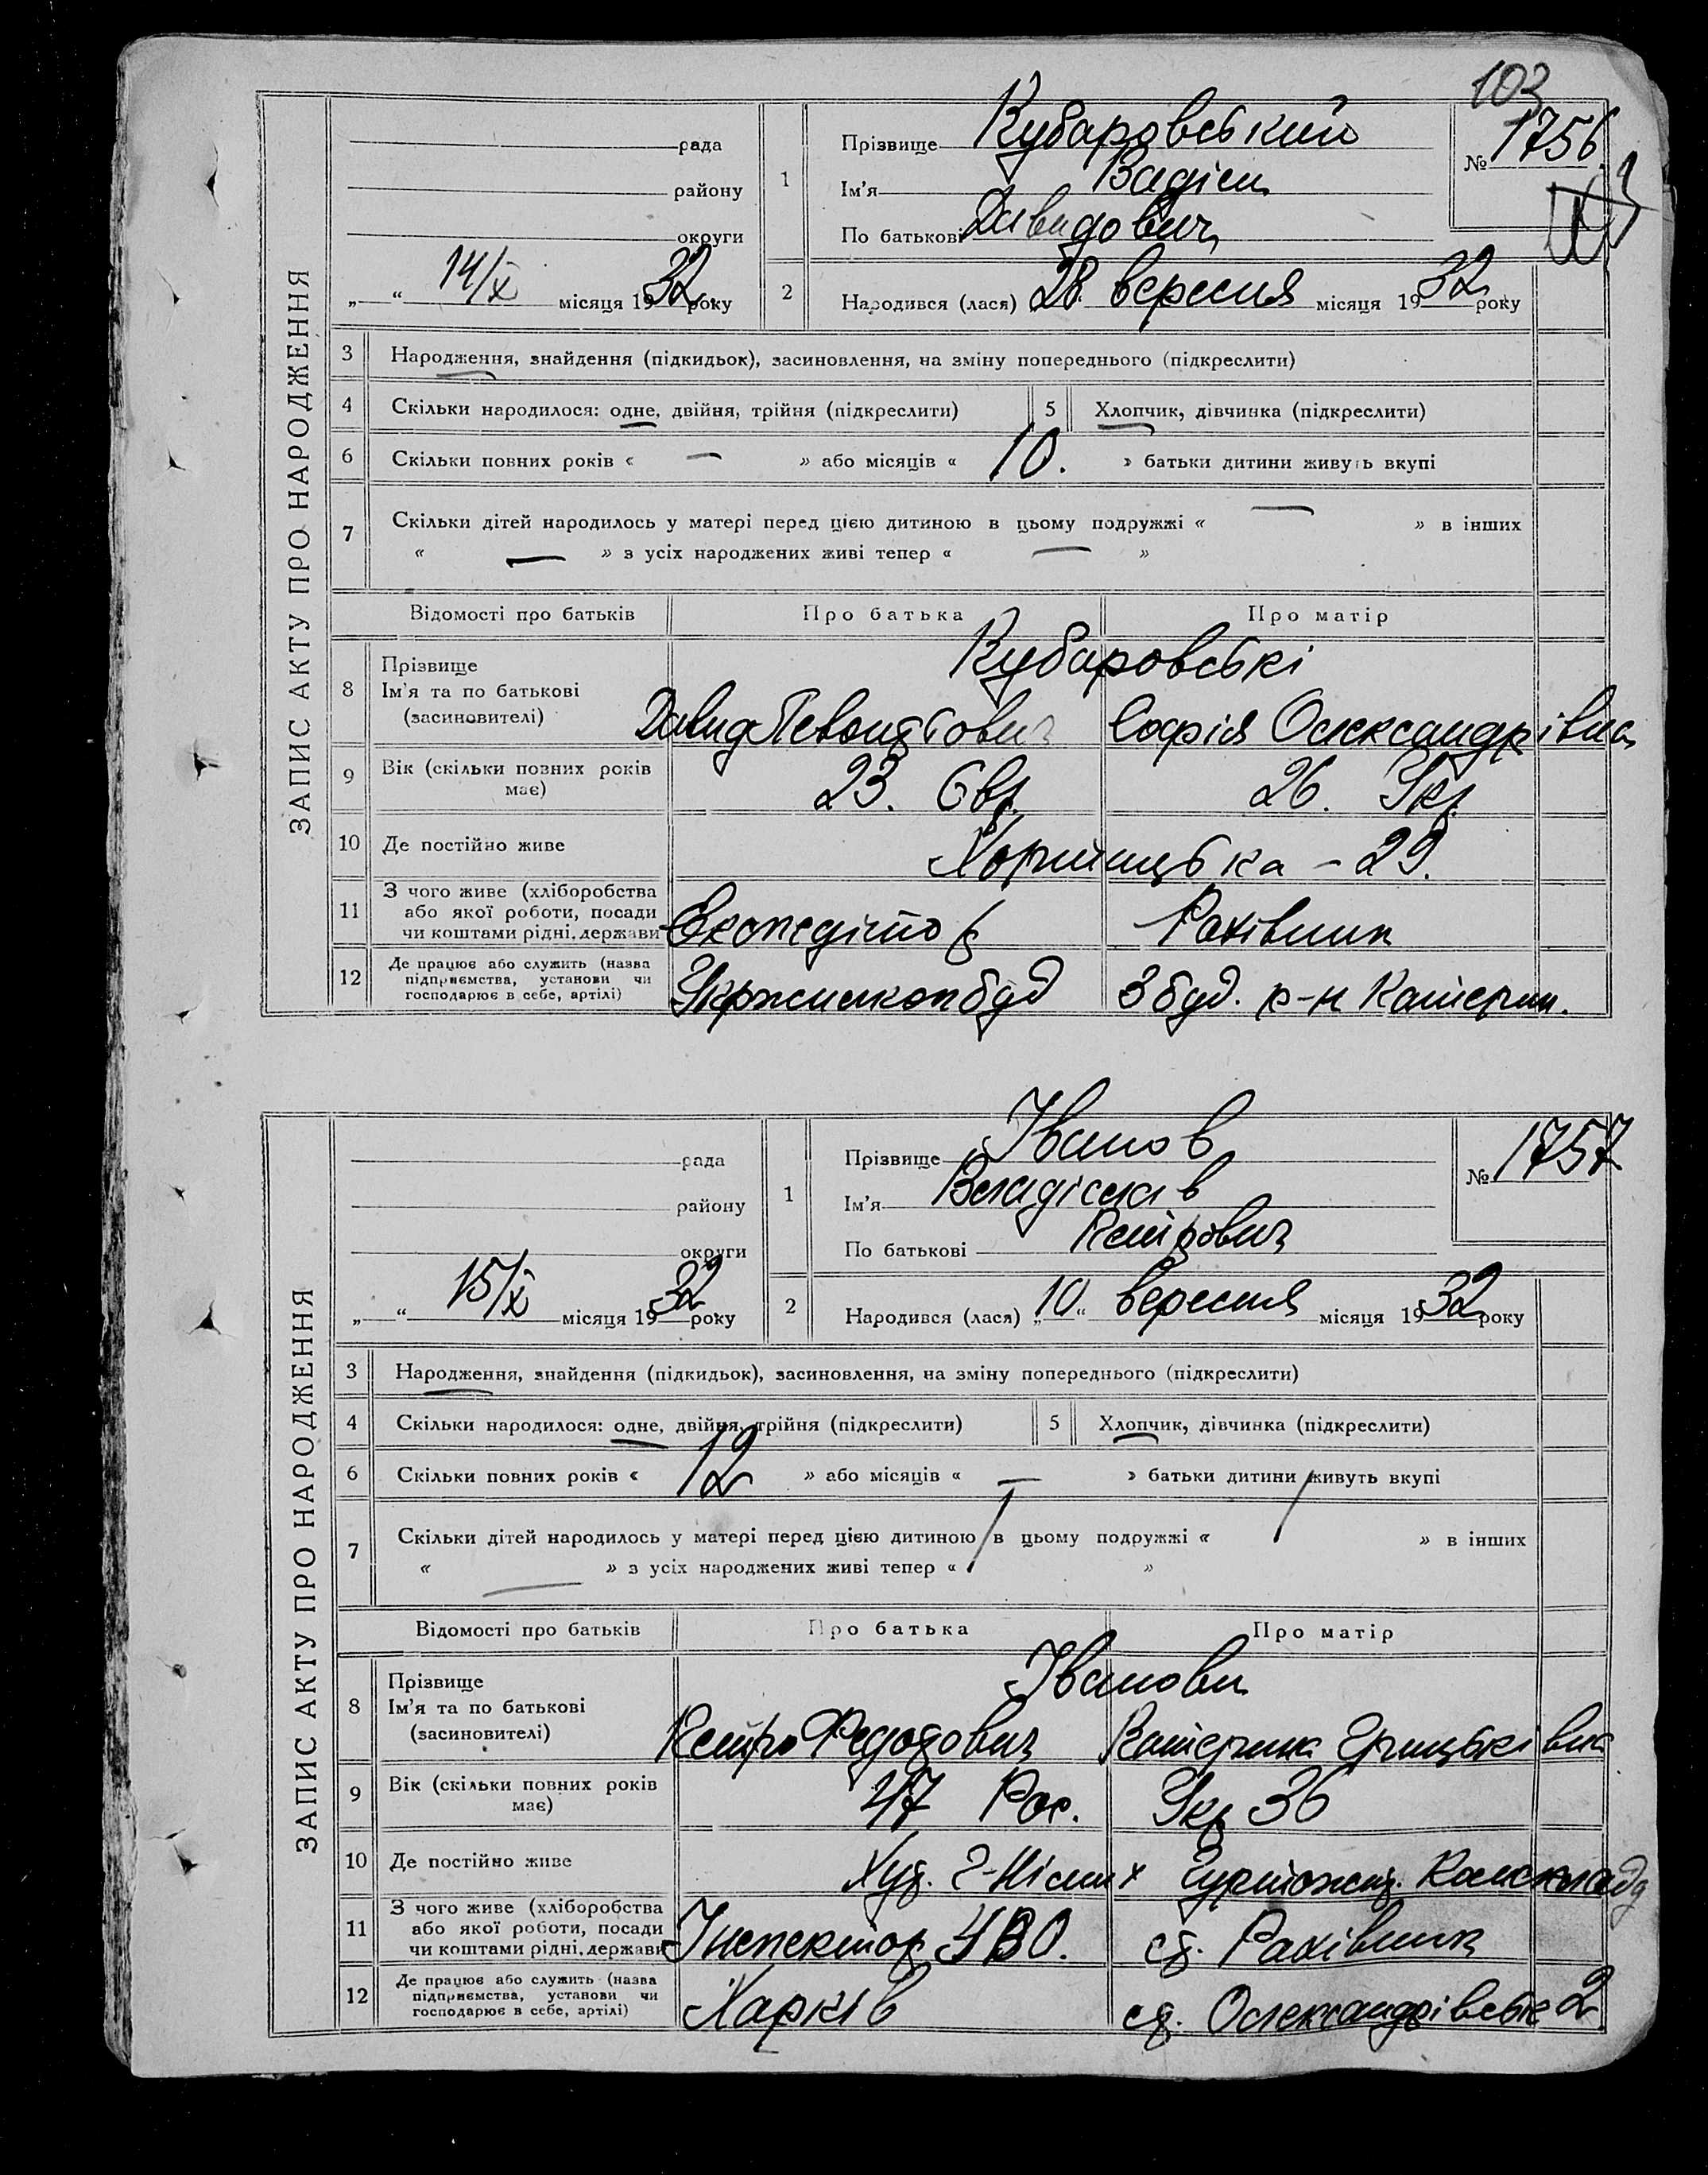 103
ЗАПИС АКТУ ПРО НАРОДЖЕННЯ
рада
району
округи
„ “ 14/X місяця 1932 року
1
Прізвище Кубаровський
Ім'я Вадім
По батькові Давидович
№ 1756
2
Народився (лася) 28 вересня місяця 1932 року
3 Народження, знайдення (підкидьок), засиновлення, на зміну попереднього (підкреслити)
4 Скільки народилося: одне, двійня, трійня (підкреслити) 5 Хлопчик, дівчинка (підкреслити)
6 Скільки повних років « — » або місяців « 10. » батьки дитини живуть вкупі
7 Скільки дітей народилось у матері перед цією дитиною в цьому подружжі « — » в інших
« — » з усіх народжених живі тепер « — »
Відомості про батьків Про батька Про матір
8 Прізвище
Ім'я та по батькові
(засиновителі)
Кубаровські
Давид Софія Олександрівна
9 Вік (скільки повних років має) 23. Євр. 26. Укр.
10 Де постійно живе Хортицька – 29.
11 З чого живе (хліборобства або якої роботи, посади чи коштами рідні, держави Експедітор Рахівник
12 Де працює або служить (назва підприємства, установи чи господарює в себе, артілі) 3 буд. р-н Катерин.
ЗАПИС АКТУ ПРО НАРОДЖЕННЯ
рада
району
округи
„ “ 15/X місяця 1932 року
1
Прізвище Іванов
Ім'я Владіслав
По батькові Петрович
№ 1757
2
Народився (лася) „10“ вересня місяця 1932 року
3 Народження, знайдення (підкидьок), засиновлення, на зміну попереднього (підкреслити)
4 Скільки народилося: одне, двійня, трійня (підкреслити) 5 Хлопчик, дівчинка (підкреслити)
6 Скільки повних років « 12 » або місяців « — » батьки дитини живуть вкупі
7 Скільки дітей народилось у матері перед цією дитиною в цьому подружжі « » в інших
« — » з усіх народжених живі тепер « »
Відомості про батьків Про батька Про матір
8 Прізвище
Ім'я та по батькові
(засиновителі)
Іванови
Петро Федотович Катерина Грицьківна
9 Вік (скільки повних років має) 47 Рос. Укр 36
10 Де постійно живе Гуртожит.
11 З чого живе (хліборобства або якої роботи, посади чи коштами рідні, держави Інспектор УВО. ст. Рахівник
12 Де працює або служить (назва підприємства, установи чи господарює в себе, артілі) Харків ст. Олександрівськ 2